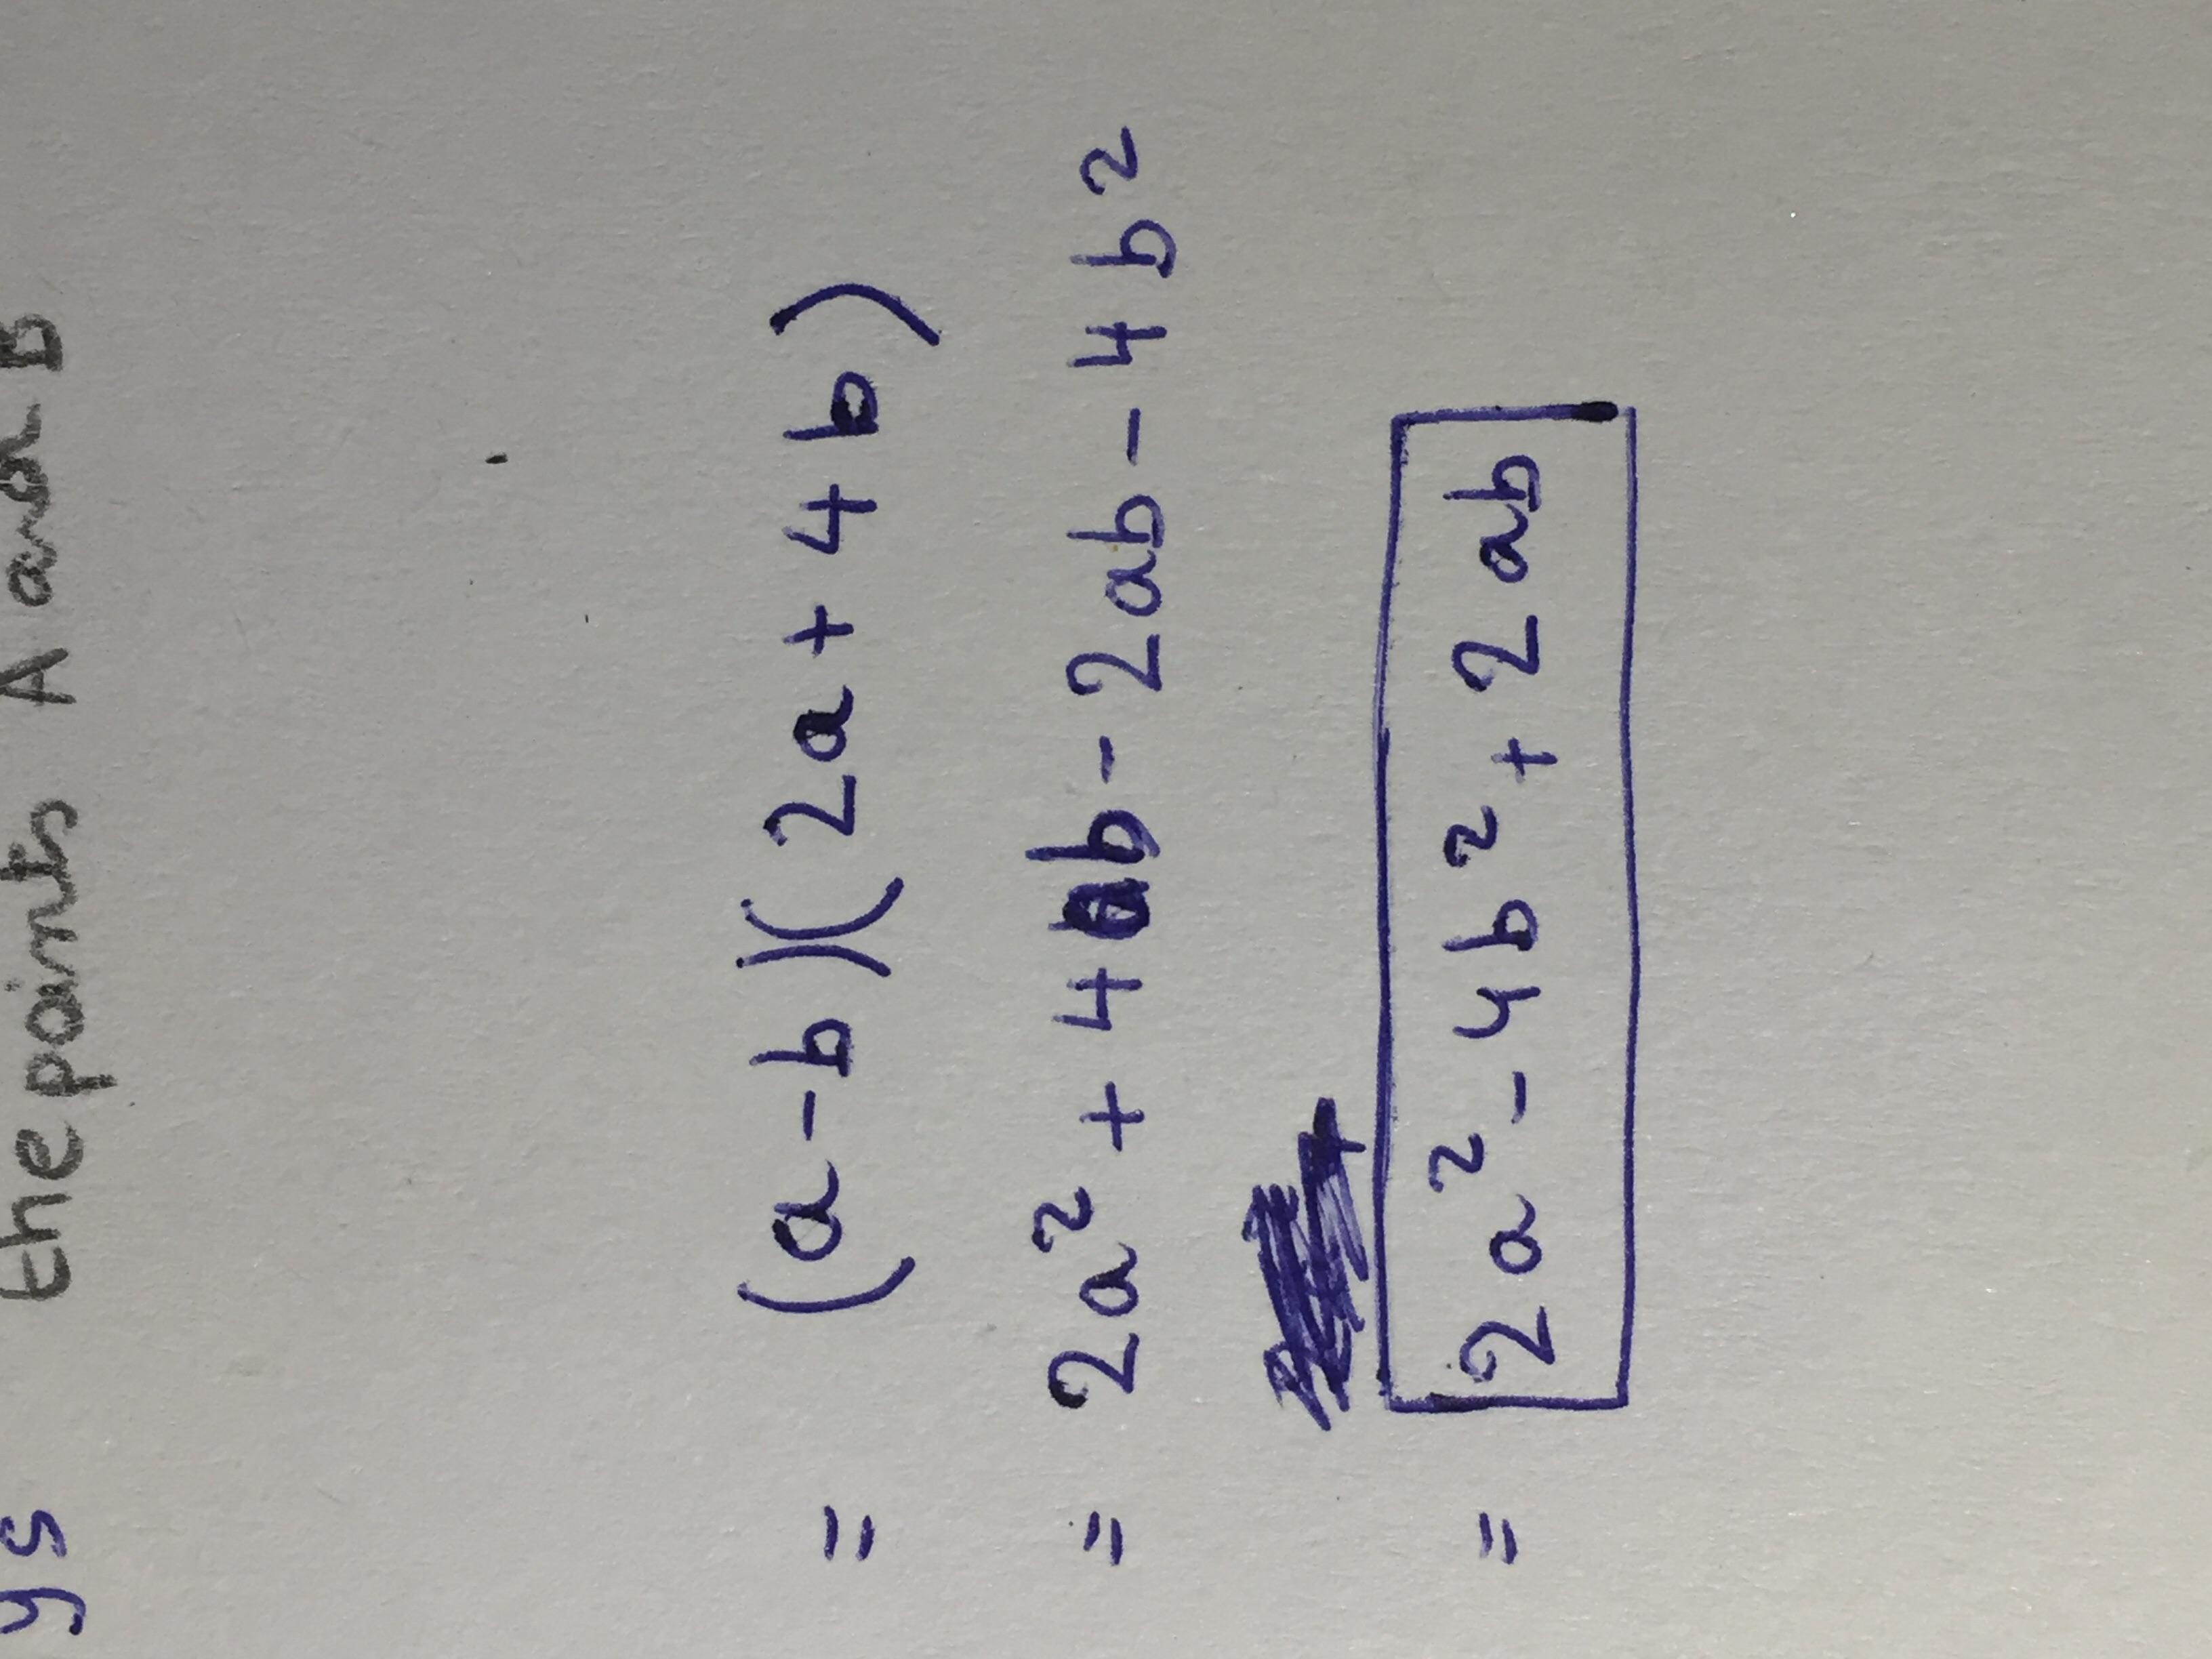 ys the points A and B
= (a-b)(2a+4b)
= 2a² + 4ab - 2ab - 4b²
= 2a² - 4b² + 2ab